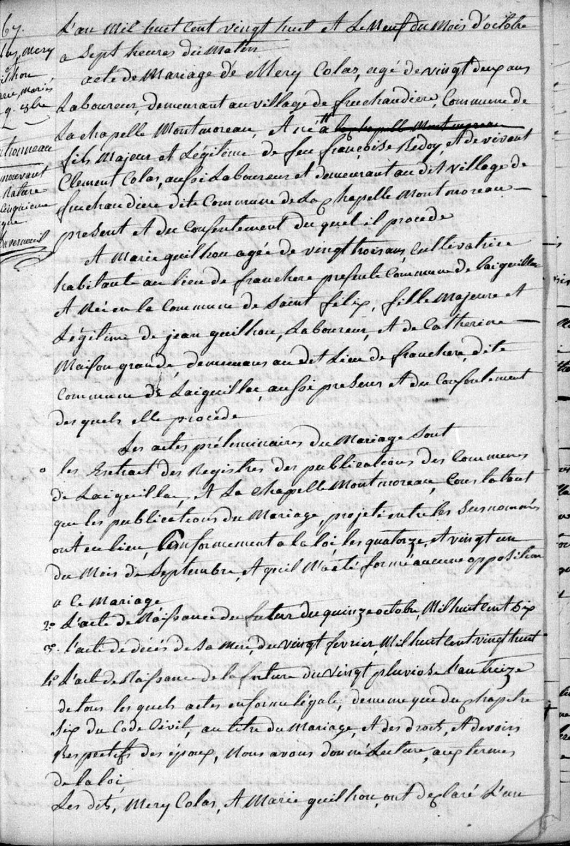 67.
Colas, Mery
et
guilhou
marie mariés
L'an Mil huit Cent vingt huit et Le Neuf du Mois d'octobre
a Sept heures du Matin
acte de Mariage de Mery Colas, agé de vingt deux ans
Laboureur, demeurant au village de fruchandiere, Commune de
La chapelle Montmoreau, et né a la chapelle Montmoreau
fils Majeur et Légitime de feu françoise Rédoy, et de vivant
Clement Colas, aussi Laboureur et demeurant au dit village de
fruchandiere dite Commune de La chapelle Montmoreau
present et du Consentement du quel il procede
et Marie guilhou agée de vingt trois ans Cultivatrice
habitante au lieu de franchere presente Commune de Laiguillac
et Née en la Commune de Saint félix, fille Majeure et
Légitime de jean guilhou, Laboureur, et de Catherine
Maison grande, demeurans au dit Lieu de franchere, dite
Commune de Laiguillac, aussi presens et du Consentement
des quels elle procède
Les actes préliminaires du Mariage sont
les Extrait des Registres des publications des Communes
de Laiguillac, et La Chapelle Montmoreau, Constatant
que les publications du Mariage, projeté entre les Susnommés
ont eu lieu, Conformement a la loi les quatorze, et vingt un
du Mois de Septembre et qu'il n'a été formé aucune opposition
a Ce Mariage
2° L'acte de Naissance du futur du quinze octobre, Mil huit Cent Six
3° l'acte de décès de Sa Mere du vingt fevrier Mil huit Cent vingt huit
4° L'acte de Naissance de la future du vingt pluviose l'an treize
de tous les quels actes en forme légale, de meme que du chapitre
Six du Code Civil, au titre du Mariage, et des droits, et devoirs
Respectifs des époux, Nous avons donné Lecture, aux termes
de la loi
Les dits, Mery Colas, et Marie guilhou, ont déclaré L'un